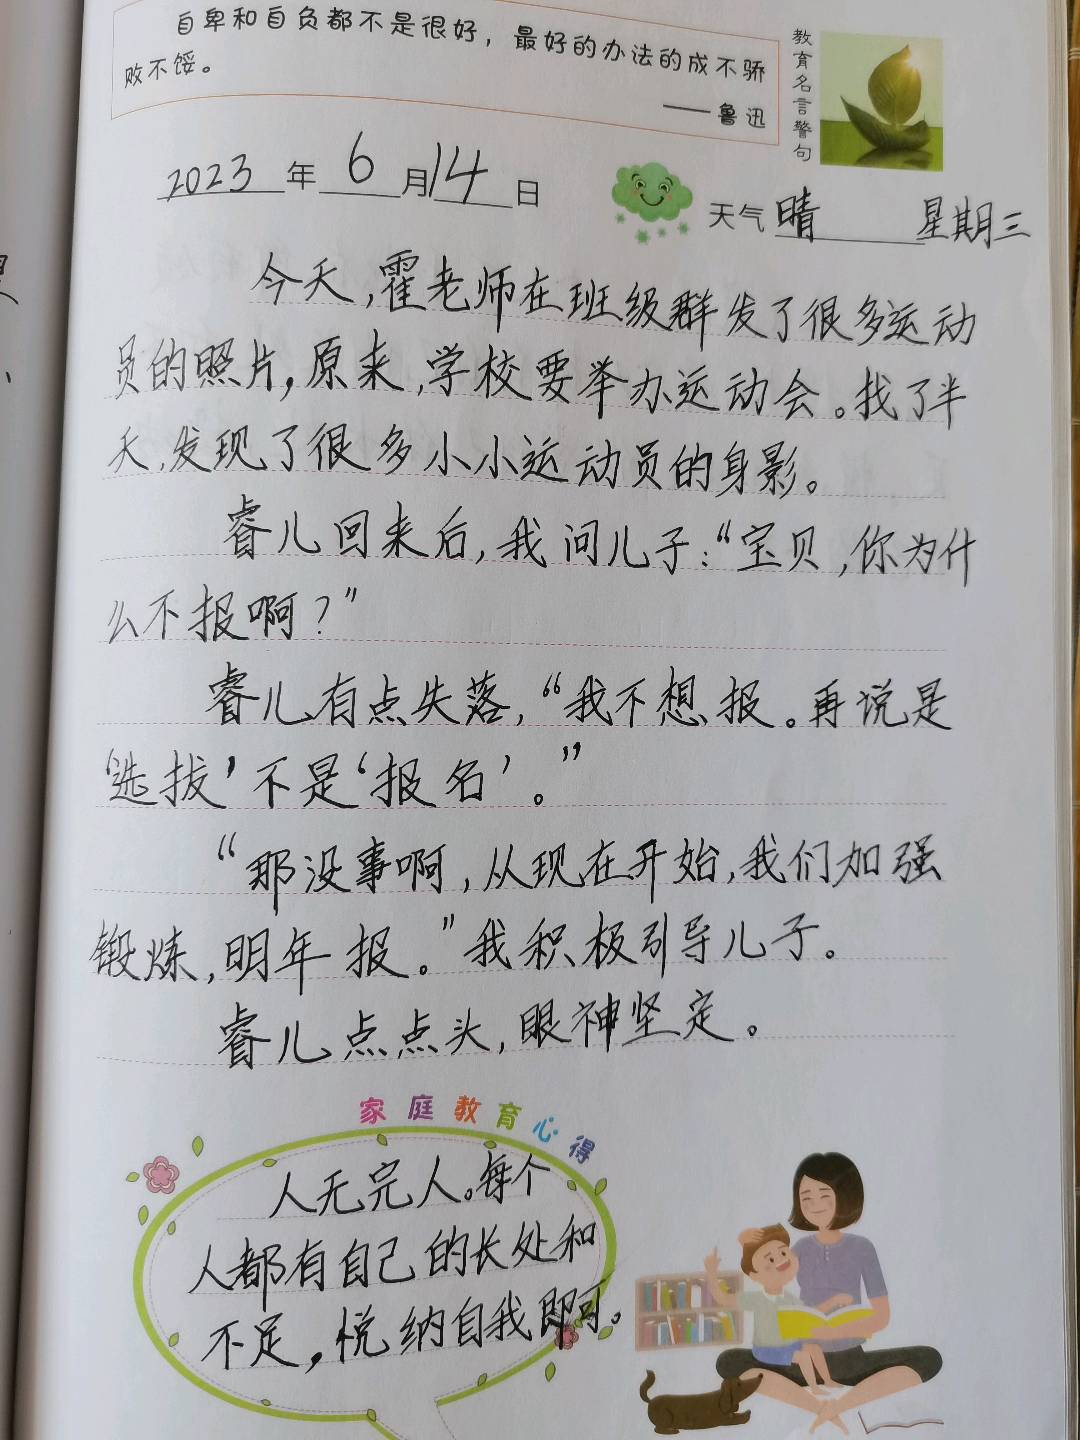 自卑和自负都不是很好，最好的办法的成不骄
败不馁。
——鲁迅
教育名言警句
2023年6月14日
天气 晴 星期三
今天，霍老师在班级群发了很多运动
员的照片，原来，学校要举办运动会。找了半
天，发现了很多小小运动员的身影。
睿儿回来后，我问儿子：“宝贝，你为什
么不报啊？”
睿儿有点失落，“我不想报。再说是
‘选拔’不是‘报名’。”
“那没事啊，从现在开始，我们加强
锻炼，明年报。”我积极引导儿子。
睿儿点点头，眼神坚定。
家庭教育心得
人无完人。每个
人都有自己的长处和
不足，悦纳自我即可。